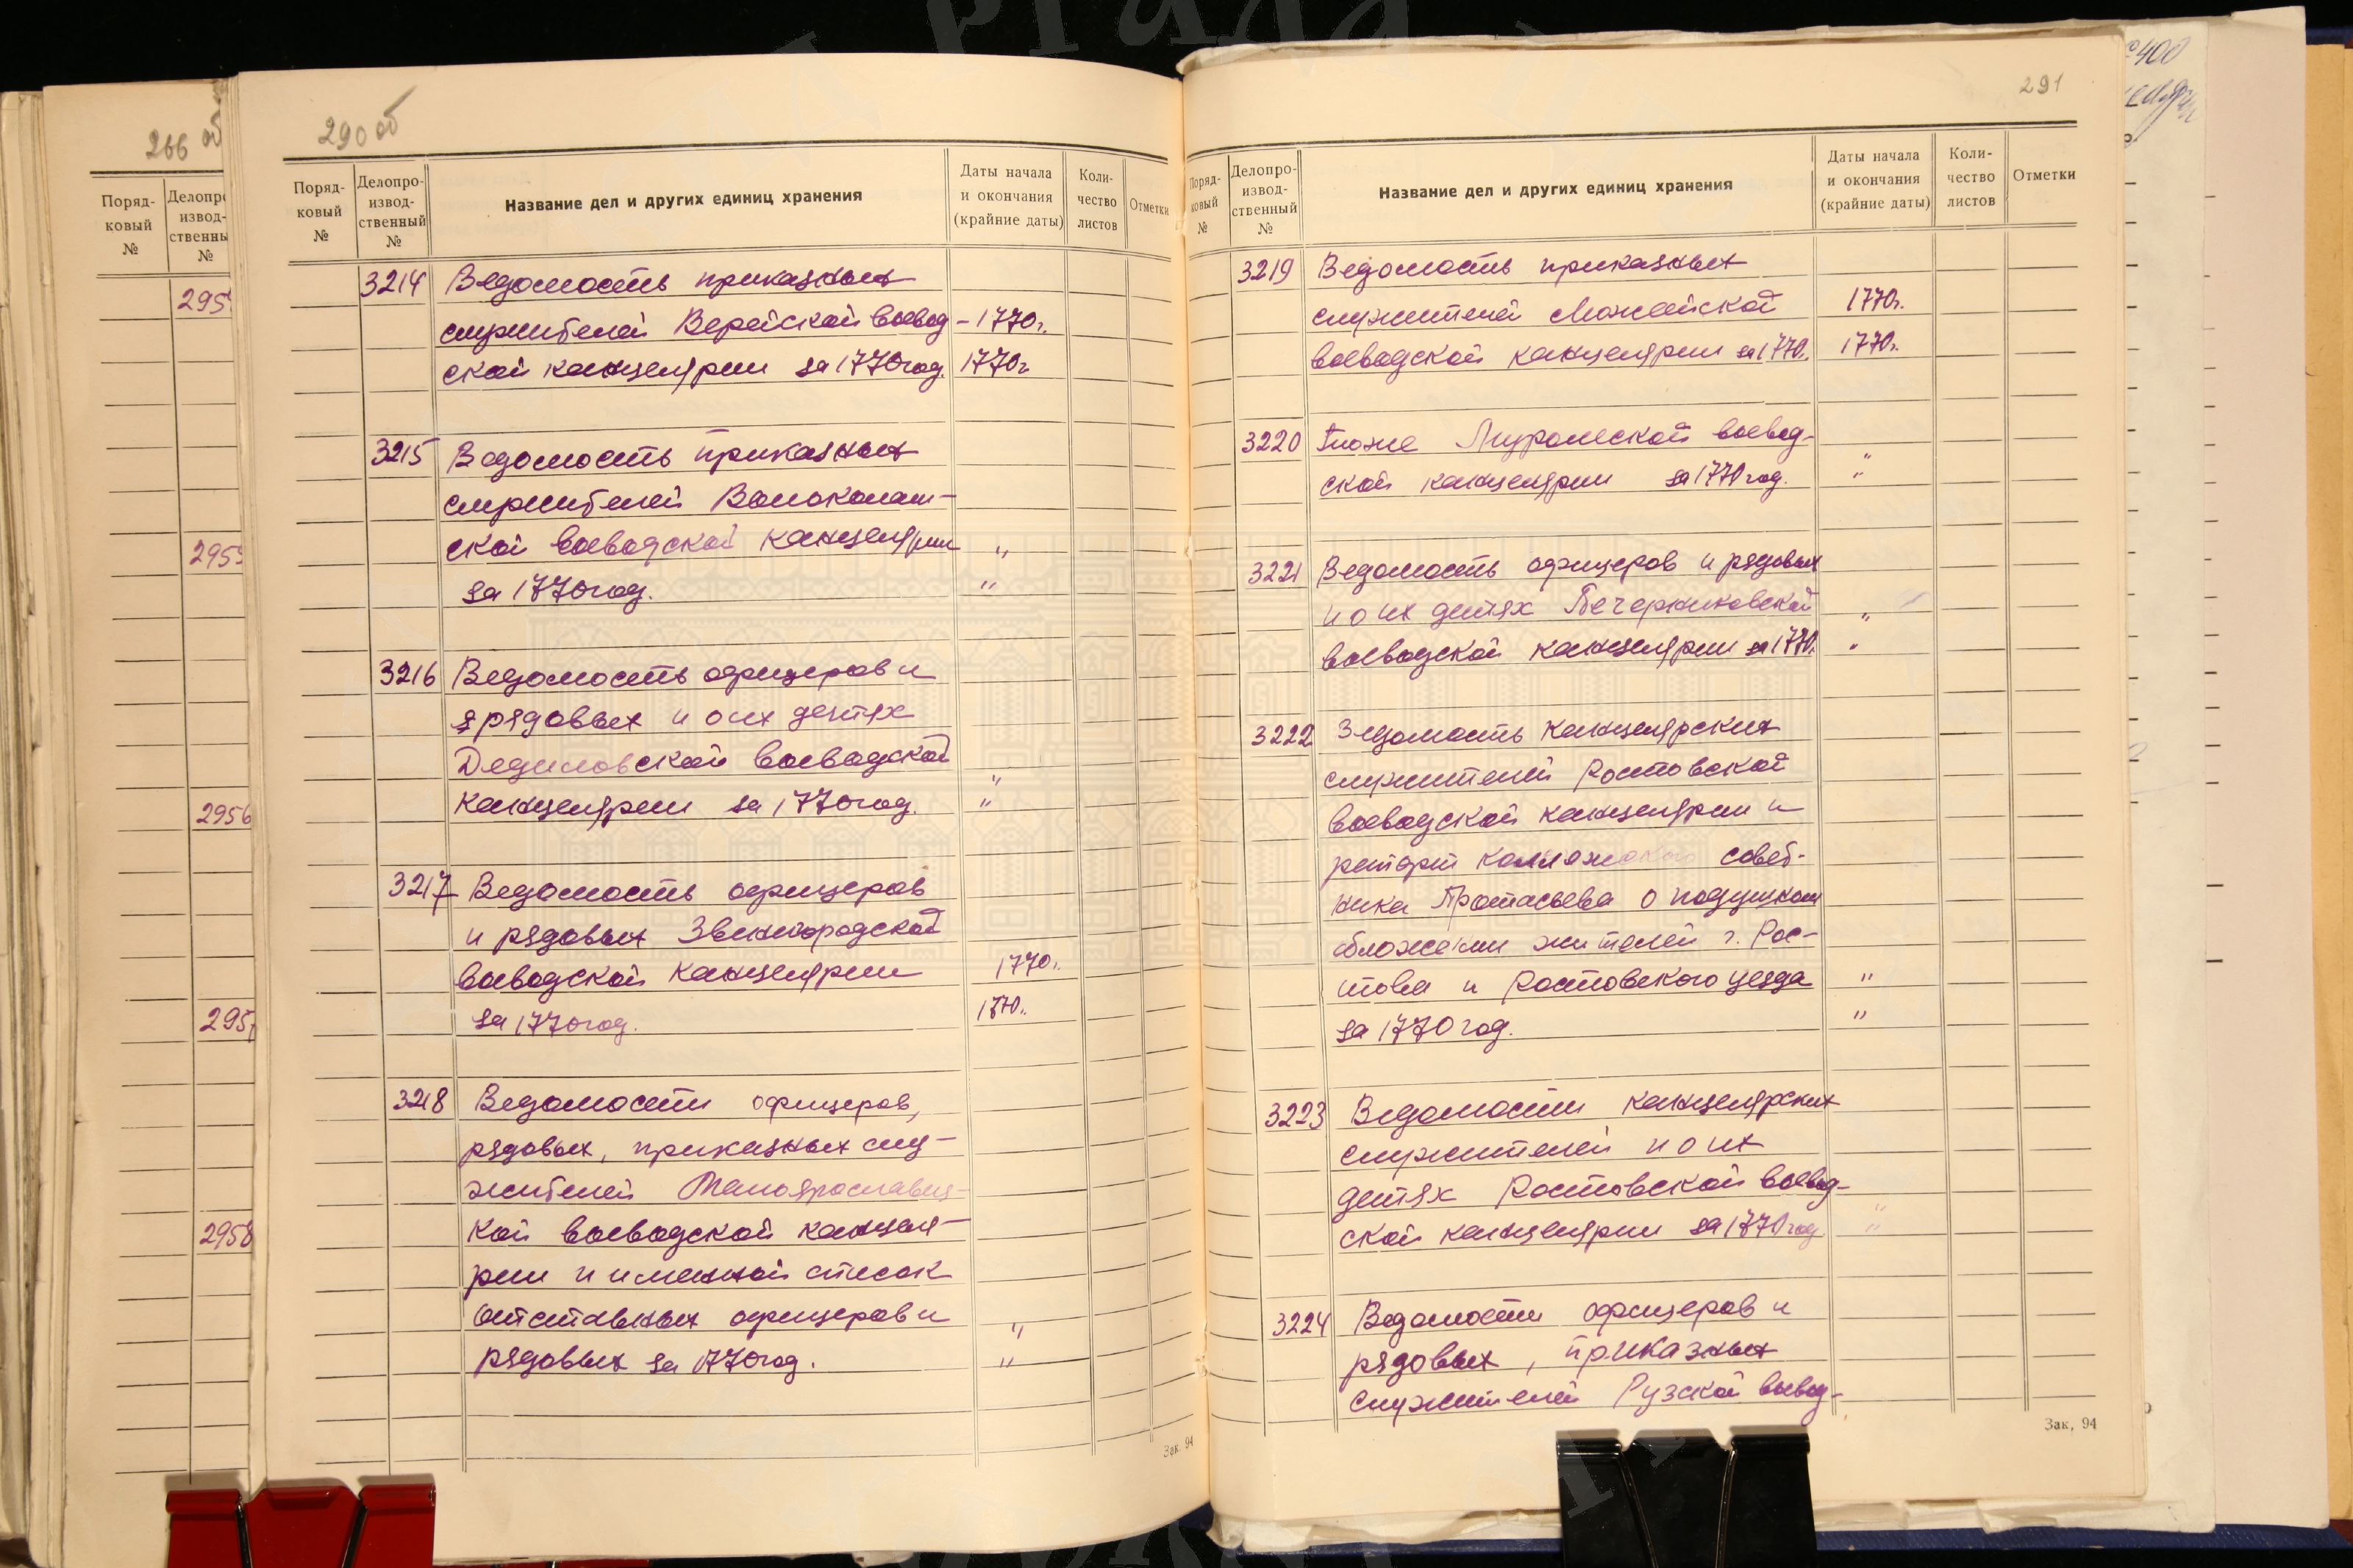 266 об
Поряд-
ковый
№
извод-
№
2956
2958
290 об
Поряд-
ковый
№
Делопро-
извод-
ственный
№
Название дел и других единиц хранения
Даты начала
и окончания
(крайние даты)
Коли-
чество
листов
Отметки
3214 Ведомость приказных
служителей Верейской воевод- 1770г.
ской канцелярии за 1770год. 1770г
3215 Ведомость приказных
служителей Волоколам-
ской воеводской канцелярии "
за 1770год. "
3216 Ведомость офицеров и
рядовых и о их детях
Дедиловской воеводской "
канцелярии за 1770год. "
3217 Ведомость офицеров
и рядовых Звенигородской
воеводской канцелярии 1770г.
за 1770год. 1770г.
3218 Ведомости офицеров,
рядовых, приказных слу-
жителей Малоярославец-
кой воеводской канцеля-
рии и именной список
отставных офицеров и "
рядовых за 1770год. "
Зак. 94
291
Поряд-
ковый
№
Делопро-
извод-
ственный
№
Название дел и других единиц хранения
Даты начала
и окончания
(крайние даты)
Коли-
чество
листов
Отметки
3219 Ведомость приказных
служителей Можайской 1770г.
воеводской канцелярии за 1770г. 1770г.
3220 Тоже Муромской воевод- "
ской канцелярии за 1770год. "
3221 Ведомость офицеров и рядовых
и о их детях Печерниковской "
воеводской канцелярии за 1770г. "
3222 Ведомость канцелярских
служителей Ростовской
воеводской канцелярии и
рапорт коллежского совет-
ника Протасьева о подушном
обложении жителей г. Рос-
това и Ростовского уезда "
за 1770год. "
3223 Ведомости канцелярских
служителей и о их
детях Ростовской воевод- "
ской канцелярии за 1770год. "
3224 Ведомости офицеров и
рядовых, приказных
служителей Рузской воевод-
Зак, 94